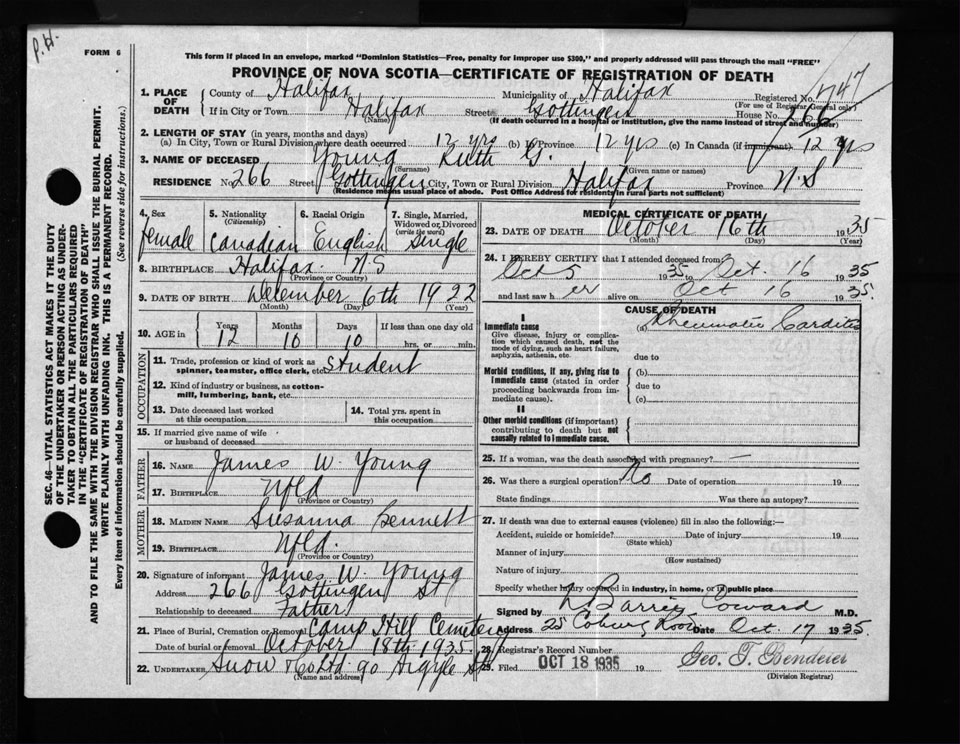 P.H.
FORM 6
This form if placed in an envelope, marked "Dominion Statistics—Free, penalty for improper use $300," and properly addressed will pass through the mail "FREE"
PROVINCE OF NOVA SCOTIA—CERTIFICATE OF REGISTRATION OF DEATH
1. PLACE OF DEATH County of Halifax Municipality of Halifax Registered No. 747
(For use of Registrar General only)
If in City or Town Halifax Street Gottingen House No. 266
(If death occurred in a hospital or institution, give the name instead of street and number)
2. LENGTH OF STAY (in years, months and days)
(a) In City, Town or Rural Division where death occurred 12 yrs (b) In Province 12 yrs (c) In Canada (if immigrant) 12 yrs
3. NAME OF DECEASED Young Ruth G.
(Surname) (Given name or names)
RESIDENCE No. 266 Street Gottingen City, Town or Rural Division Halifax Province N.S
(Residence means usual place of abode. Post Office Address for residents in rural parts not sufficient)
4. Sex 5. Nationality (Citizenship) 6. Racial Origin 7. Single, Married, Widowed or Divorced (write the word)
female Canadian English Single
8. BIRTHPLACE Halifax N.S
(Province or Country)
9. DATE OF BIRTH December 6th 1922
(Month) (Day) (Year)
10. AGE in Years Months Days If less than one day old
12 10 10 hrs. or min.
OCCUPATION
11. Trade, profession or kind of work as spinner, teamster, office clerk, etc. Student
12. Kind of industry or business, as cotton-mill, lumbering, bank, etc.
13. Date deceased last worked at this occupation 14. Total yrs. spent in this occupation
15. If married give name of wife or husband of deceased
FATHER
16. NAME James W. Young
17. BIRTHPLACE Nfld
(Province or Country)
MOTHER
18. MAIDEN NAME Susanna Bennett
19. BIRTHPLACE Nfld.
(Province or Country)
20. Signature of informant James W. Young
Address 266 Gottingen St
Relationship to deceased Father
21. Place of Burial, Cremation or Removal Camp Hill Cemetery
Date of burial or removal October 18th 1935.
22. UNDERTAKER Snow & Co Ltd. 90 Argyle St
(Name and address)
MEDICAL CERTIFICATE OF DEATH
23. DATE OF DEATH October 16th 1935
(Month) (Day) (Year)
24. I HEREBY CERTIFY that I attended deceased from
Oct 5 1935 to Oct. 16 1935
and last saw her alive on Oct 16 1935.
CAUSE OF DEATH
I
Immediate cause
Give disease, injury or complication which caused death, not the mode of dying, such as heart failure, asphyxia, asthenia, etc.
(a) Rheumatic Carditis
due to
Morbid conditions, if any, giving rise to immediate cause (stated in order proceeding backwards from immediate cause).
(b)
due to
(c)
II
Other morbid conditions (if important) contributing to death but not causally related to immediate cause.
25. If a woman, was the death associated with pregnancy? —
26. Was there a surgical operation? No Date of operation 19
State findings Was there an autopsy?
27. If death was due to external causes (violence) fill in also the following:—
Accident, suicide or homicide? Date of injury 19
(State which)
Manner of injury
(How sustained)
Nature of injury
Specify whether injury occurred in industry, in home, or in public place
Signed by Barrie Coward M.D.
Address 25 Coburg Road Date Oct. 17 1935.
28. Registrar's Record Number
29. Filed OCT 18 1935 19 Geo. T. Bendeier
(Division Registrar)
SEC. 46—VITAL STATISTICS ACT MAKES IT THE DUTY
OF THE UNDERTAKER OR PERSON ACTING AS UNDER-
TAKER TO OBTAIN ALL THE PARTICULARS REQUIRED
IN THE "CERTIFICATE OF REGISTRATION OF DEATH"
AND TO FILE THE SAME WITH THE DIVISION REGISTRAR WHO SHALL ISSUE THE BURIAL PERMIT.
WRITE PLAINLY WITH UNFADING INK. THIS IS A PERMANENT RECORD.
Every item of information should be carefully supplied. (See reverse side for instructions.)